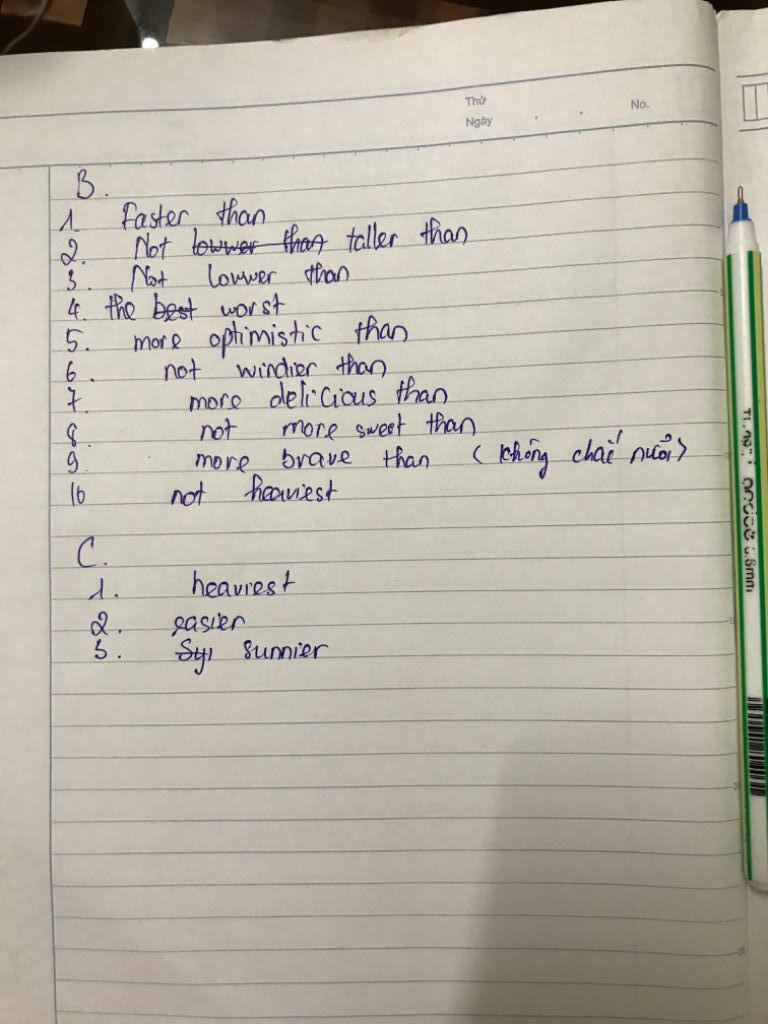 Thứ
No.
Ngày
B.
1. Faster than
2. Not lowwer than taller than
3. Not lowwer than
4. the best worst
5. more optimistic than
6. not windier than
7. more delicious than
8 not more sweet than
9 more brave than (không chắc nuối)
10 not heaviest
C.
1. heaviest
2. easier
3. Syi sunnier
0.5mm